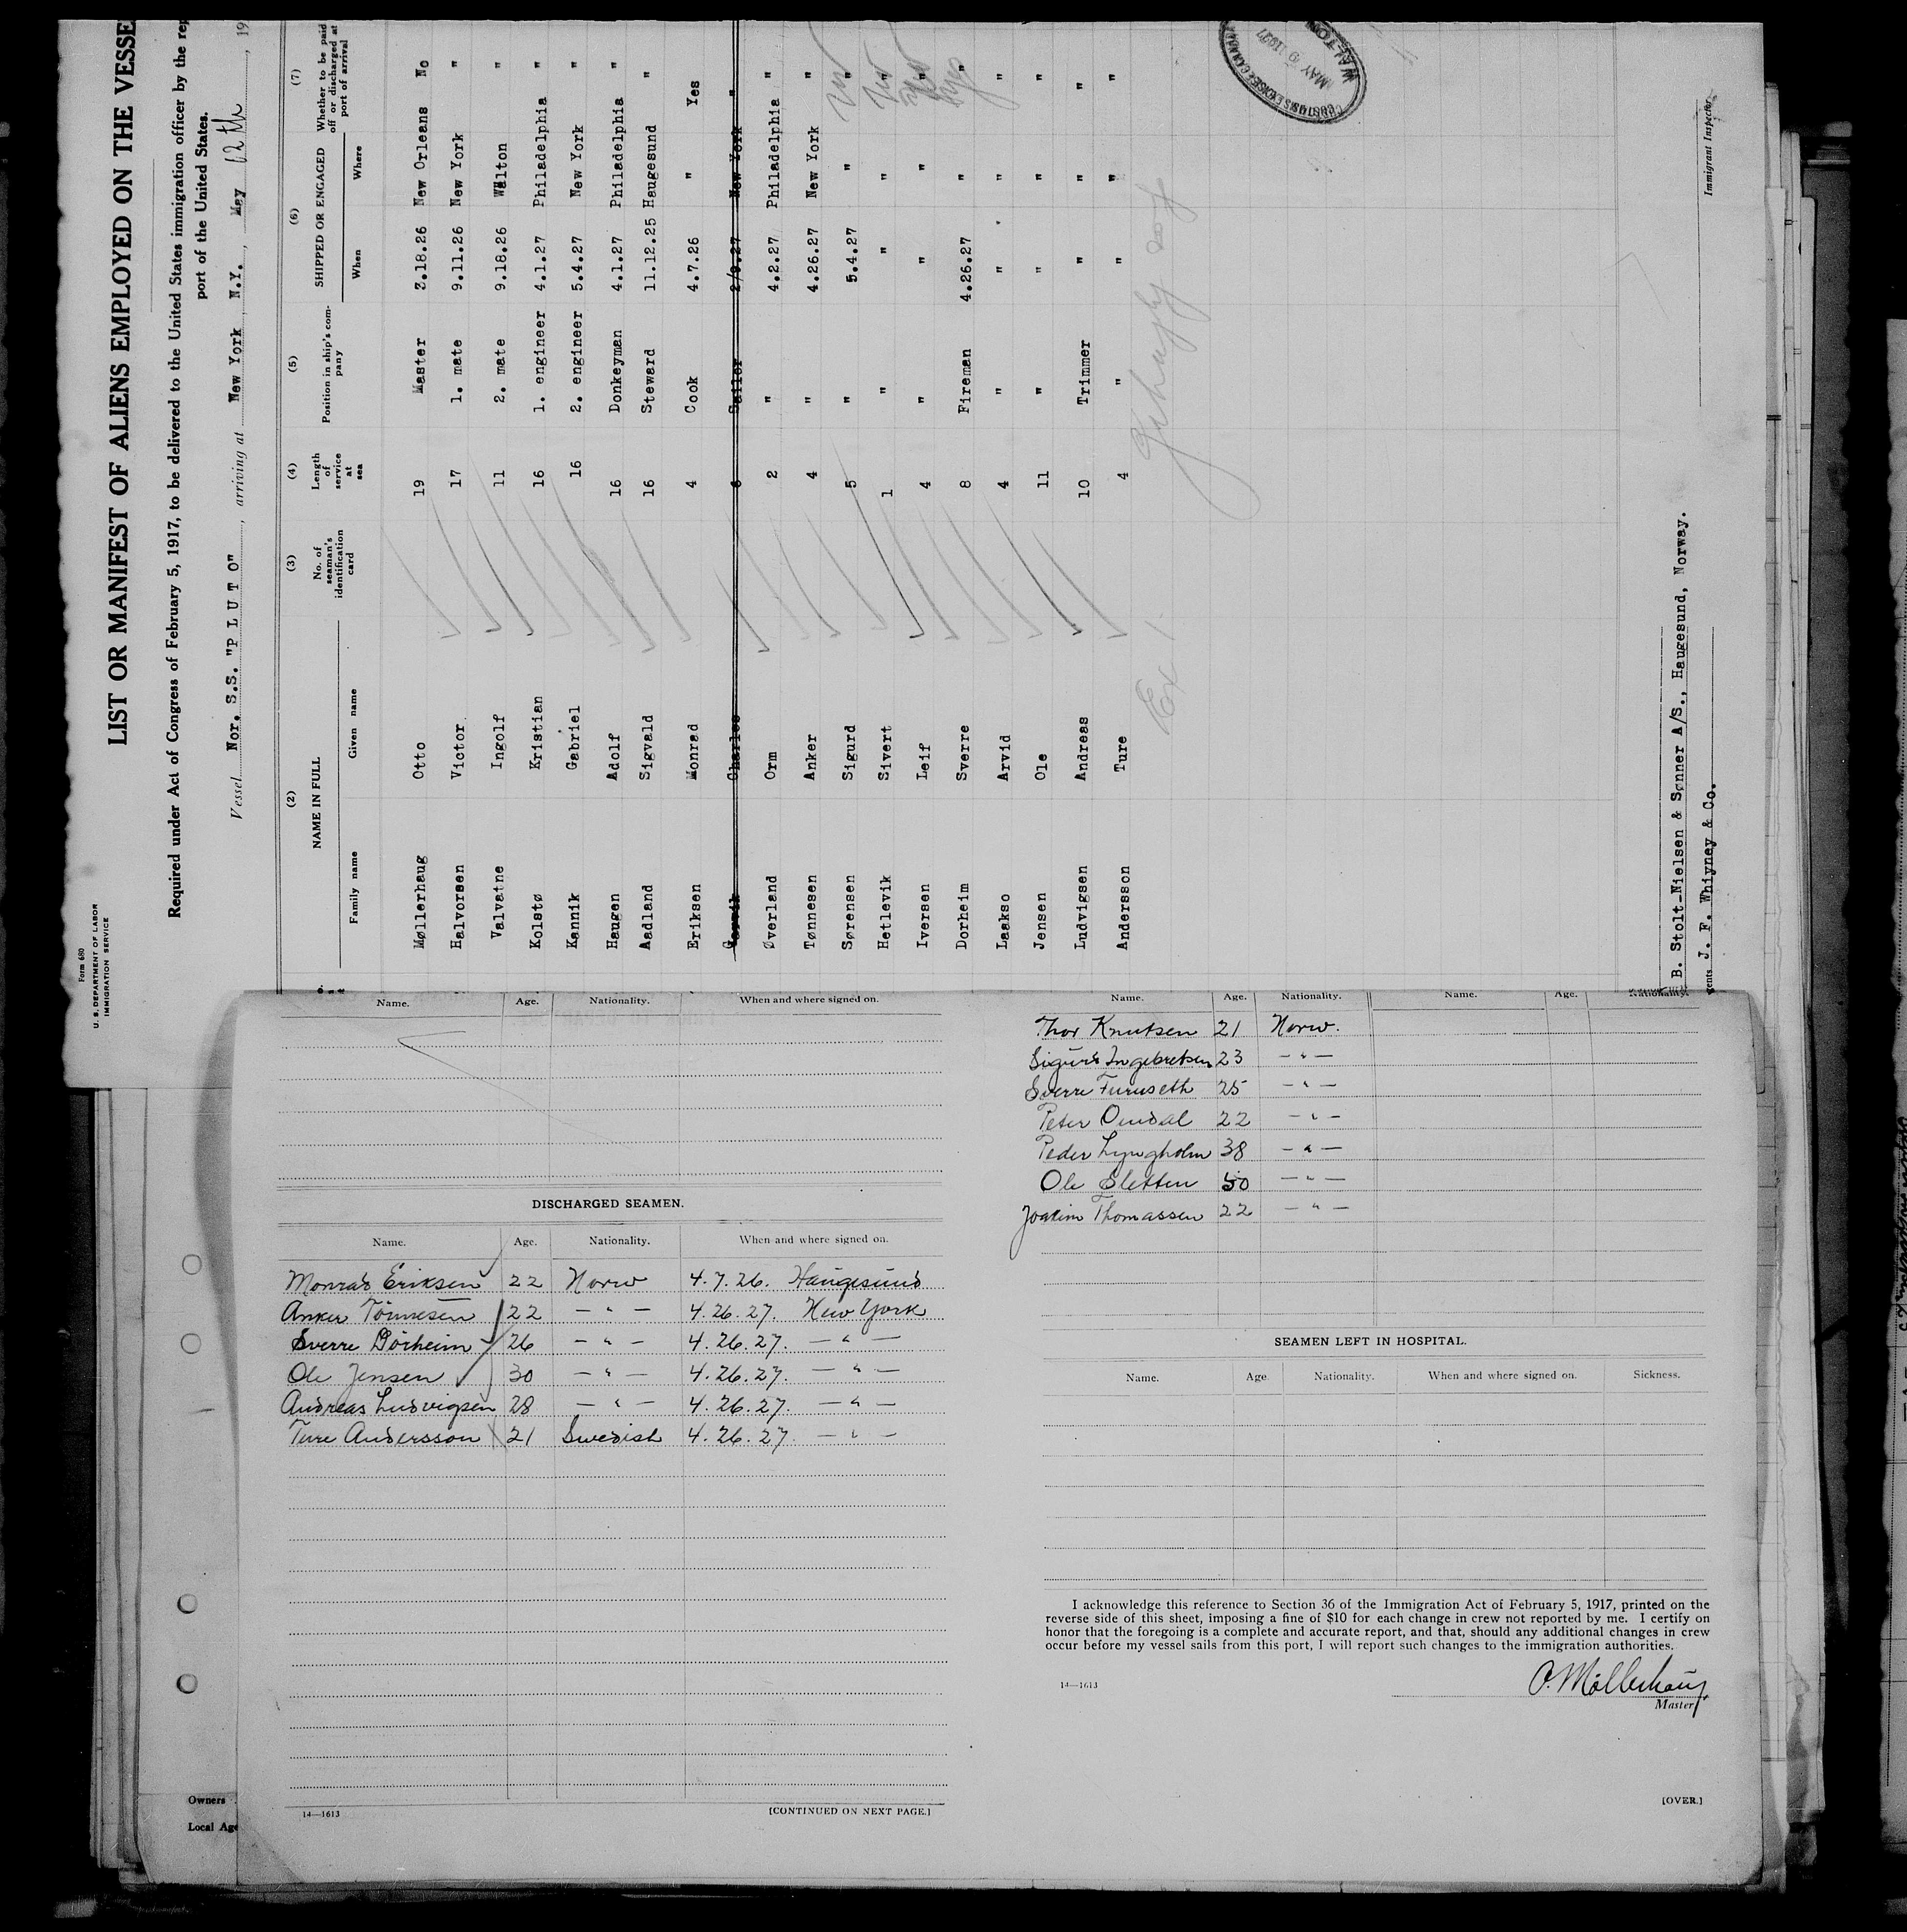 Form 680
U. S. DEPARTMENT OF LABOR
IMMIGRATION SERVICE
LIST OR MANIFEST OF ALIENS EMPLOYED ON THE VESSE
Required under Act of Congress of February 5, 1917, to be delivered to the United States immigration officer by the rep
port of the United States.
Vessel Nor. S.S. "P L U T O", arriving at New York N.Y., May 12th, 19
(2) (3) (4) (5) (6) (7)
NAME IN FULL No. of seaman's identification card Length of service at sea Position in ship's company SHIPPED OR ENGAGED Whether to be paid off or discharged at port of arrival
Family name Given name When Where
Møllerhaug Otto 19 Master 3.18.26 New Orleans No
Halvorsen Victor 17 1. mate 9.11.26 New York "
Valvatne Ingolf 11 2. mate 9.18.26 Walton "
Kolstø Kristian 16 1. engineer 4.1.27 Philadelphia "
Kannik Gabriel 16 2. engineer 5.4.27 New York "
Haugen Adolf 16 Donkeyman 4.1.27 Philadelphia "
Aadland Sigvald 16 Steward 11.12.25 Haugesund "
Eriksen Monrad 4 Cook 4.7.26 " Yes
Garvik Charles 6 Sailor 2/9.27 New York "
Øverland Orm 2 " 4.2.27 Philadelphia "
Tønnesen Anker 4 " 4.26.27 New York
Sørensen Sigurd 5 " 5.4.27 " "
Hetlevik Sivert 1 " " " "
Iversen Leif 4 " " " "
Dorheim Sverre 8 Fireman 4.26.27 " " yes
Laakso Arvid 4 " " " "
Jensen Ole 11 " " " "
Ludvigsen Andreas 10 Trimmer " " "
Andersson Ture 4 " " " "
Ex 1
MAY 1927
WALTON
Immigrant Inspector
B. Stolt-Nielsen & Sønner A/S., Haugesund, Norway.
gents J. F. Whiyney & Co.
Name. Age. Nationality. When and where signed on.
DISCHARGED SEAMEN.
Name. Age. Nationality. When and where signed on.
Monrad Eriksen 22 Norw 4.7.26. Haugesund
Anker Tönnesen 22 — " — 4.26.27. New York
Sverre Dörheim 26 — " — 4.26.27. — " —
Ole Jensen 30 — " — 4.26.27. — " —
Andreas Ludvigsen 28 — " — 4.26.27. — " —
Ture Andersson 21 Swedish 4.26.27 — " —
14—1613
[CONTINUED ON NEXT PAGE.]
Name. Age. Nationality. Name. Age. Nationality.
Thor Knutsen 21 Norw.
Sigurd Ingebretsen 23 — " —
Sverre Furuseth 25 — " —
Peter Omdal 22 — " —
Peder Lyngholm 38 — " —
Ole Sletten 50 — " —
Joakim Thomassen 22 — " —
SEAMEN LEFT IN HOSPITAL.
Name. Age. Nationality. When and where signed on. Sickness.
I acknowledge this reference to Section 36 of the Immigration Act of February 5, 1917, printed on the
reverse side of this sheet, imposing a fine of $10 for each change in crew not reported by me. I certify on
honor that the foregoing is a complete and accurate report, and that, should any additional changes in crew
occur before my vessel sails from this port, I will report such changes to the immigration authorities.
14—1613
O. Möllerhaug
Master
[OVER.]
Owners
Local Age